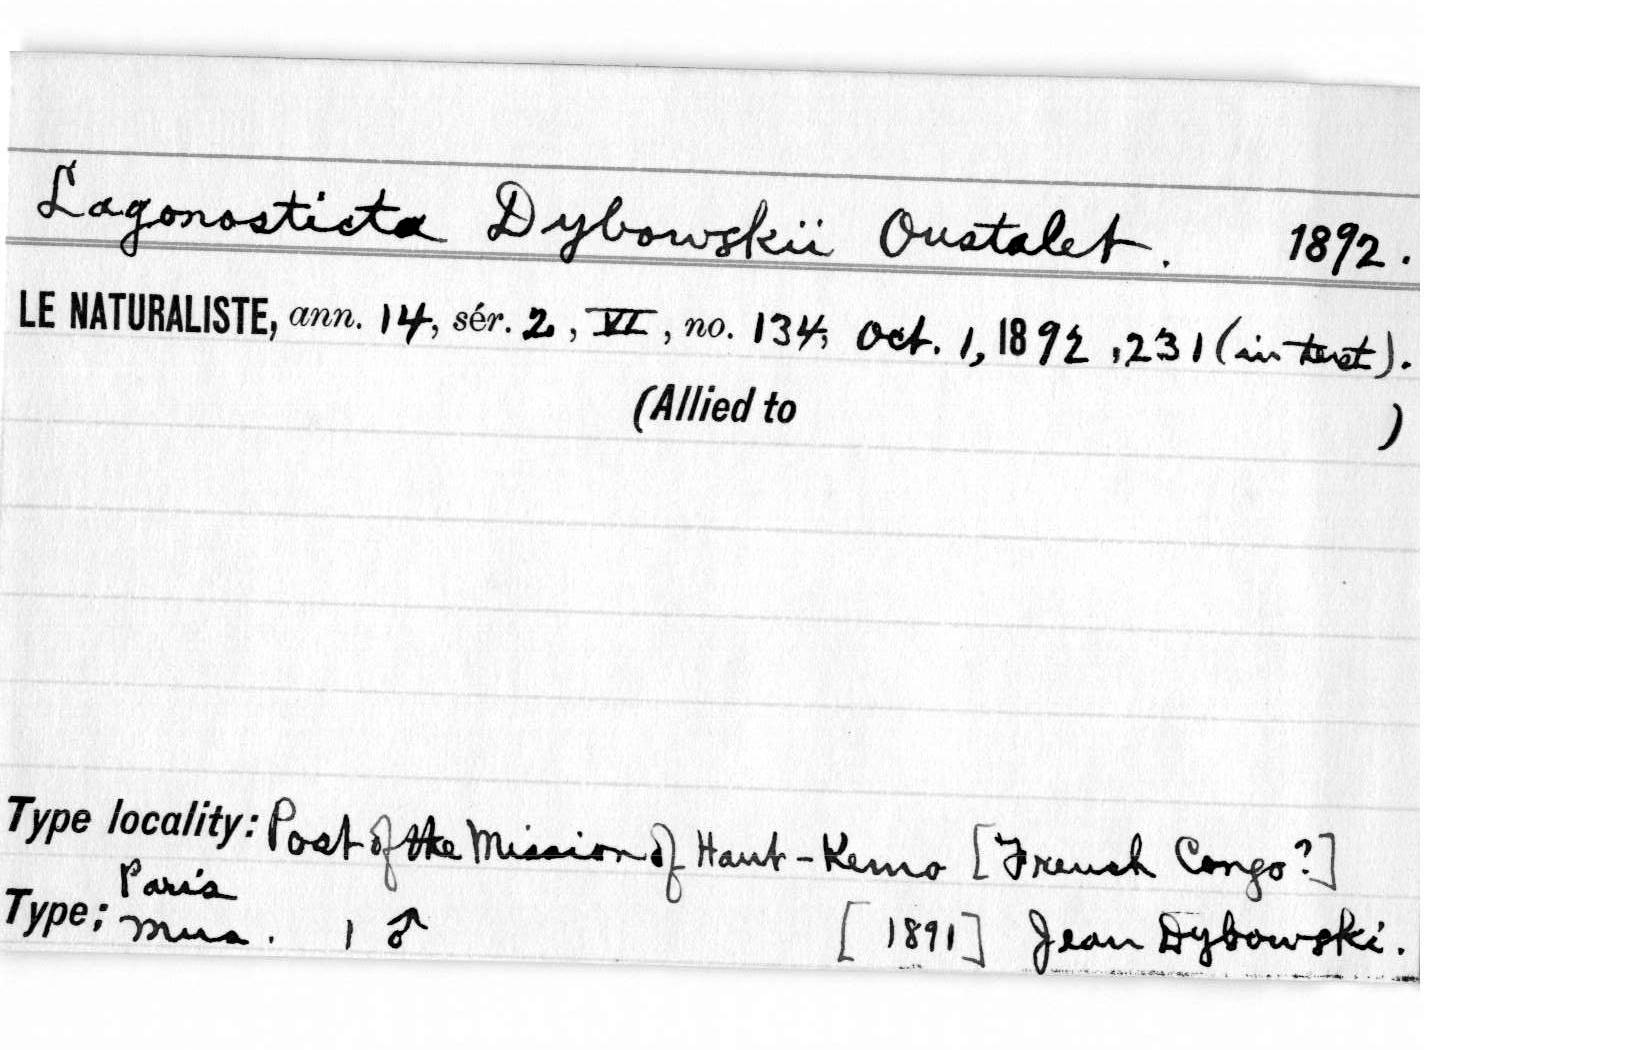 Lagonosticta Dybowskii Oustalet. 1892.
LE NATURALISTE, ann. 14, sér. 2, VI, no. 134, Oct. 1, 1892, 231 (in text).
(Allied to )
Type locality: Post of the Mission of Haut-Kemo [French Congo?]
Type: Paris Mus. 1 ♂ [1891] Jean Dybowski.